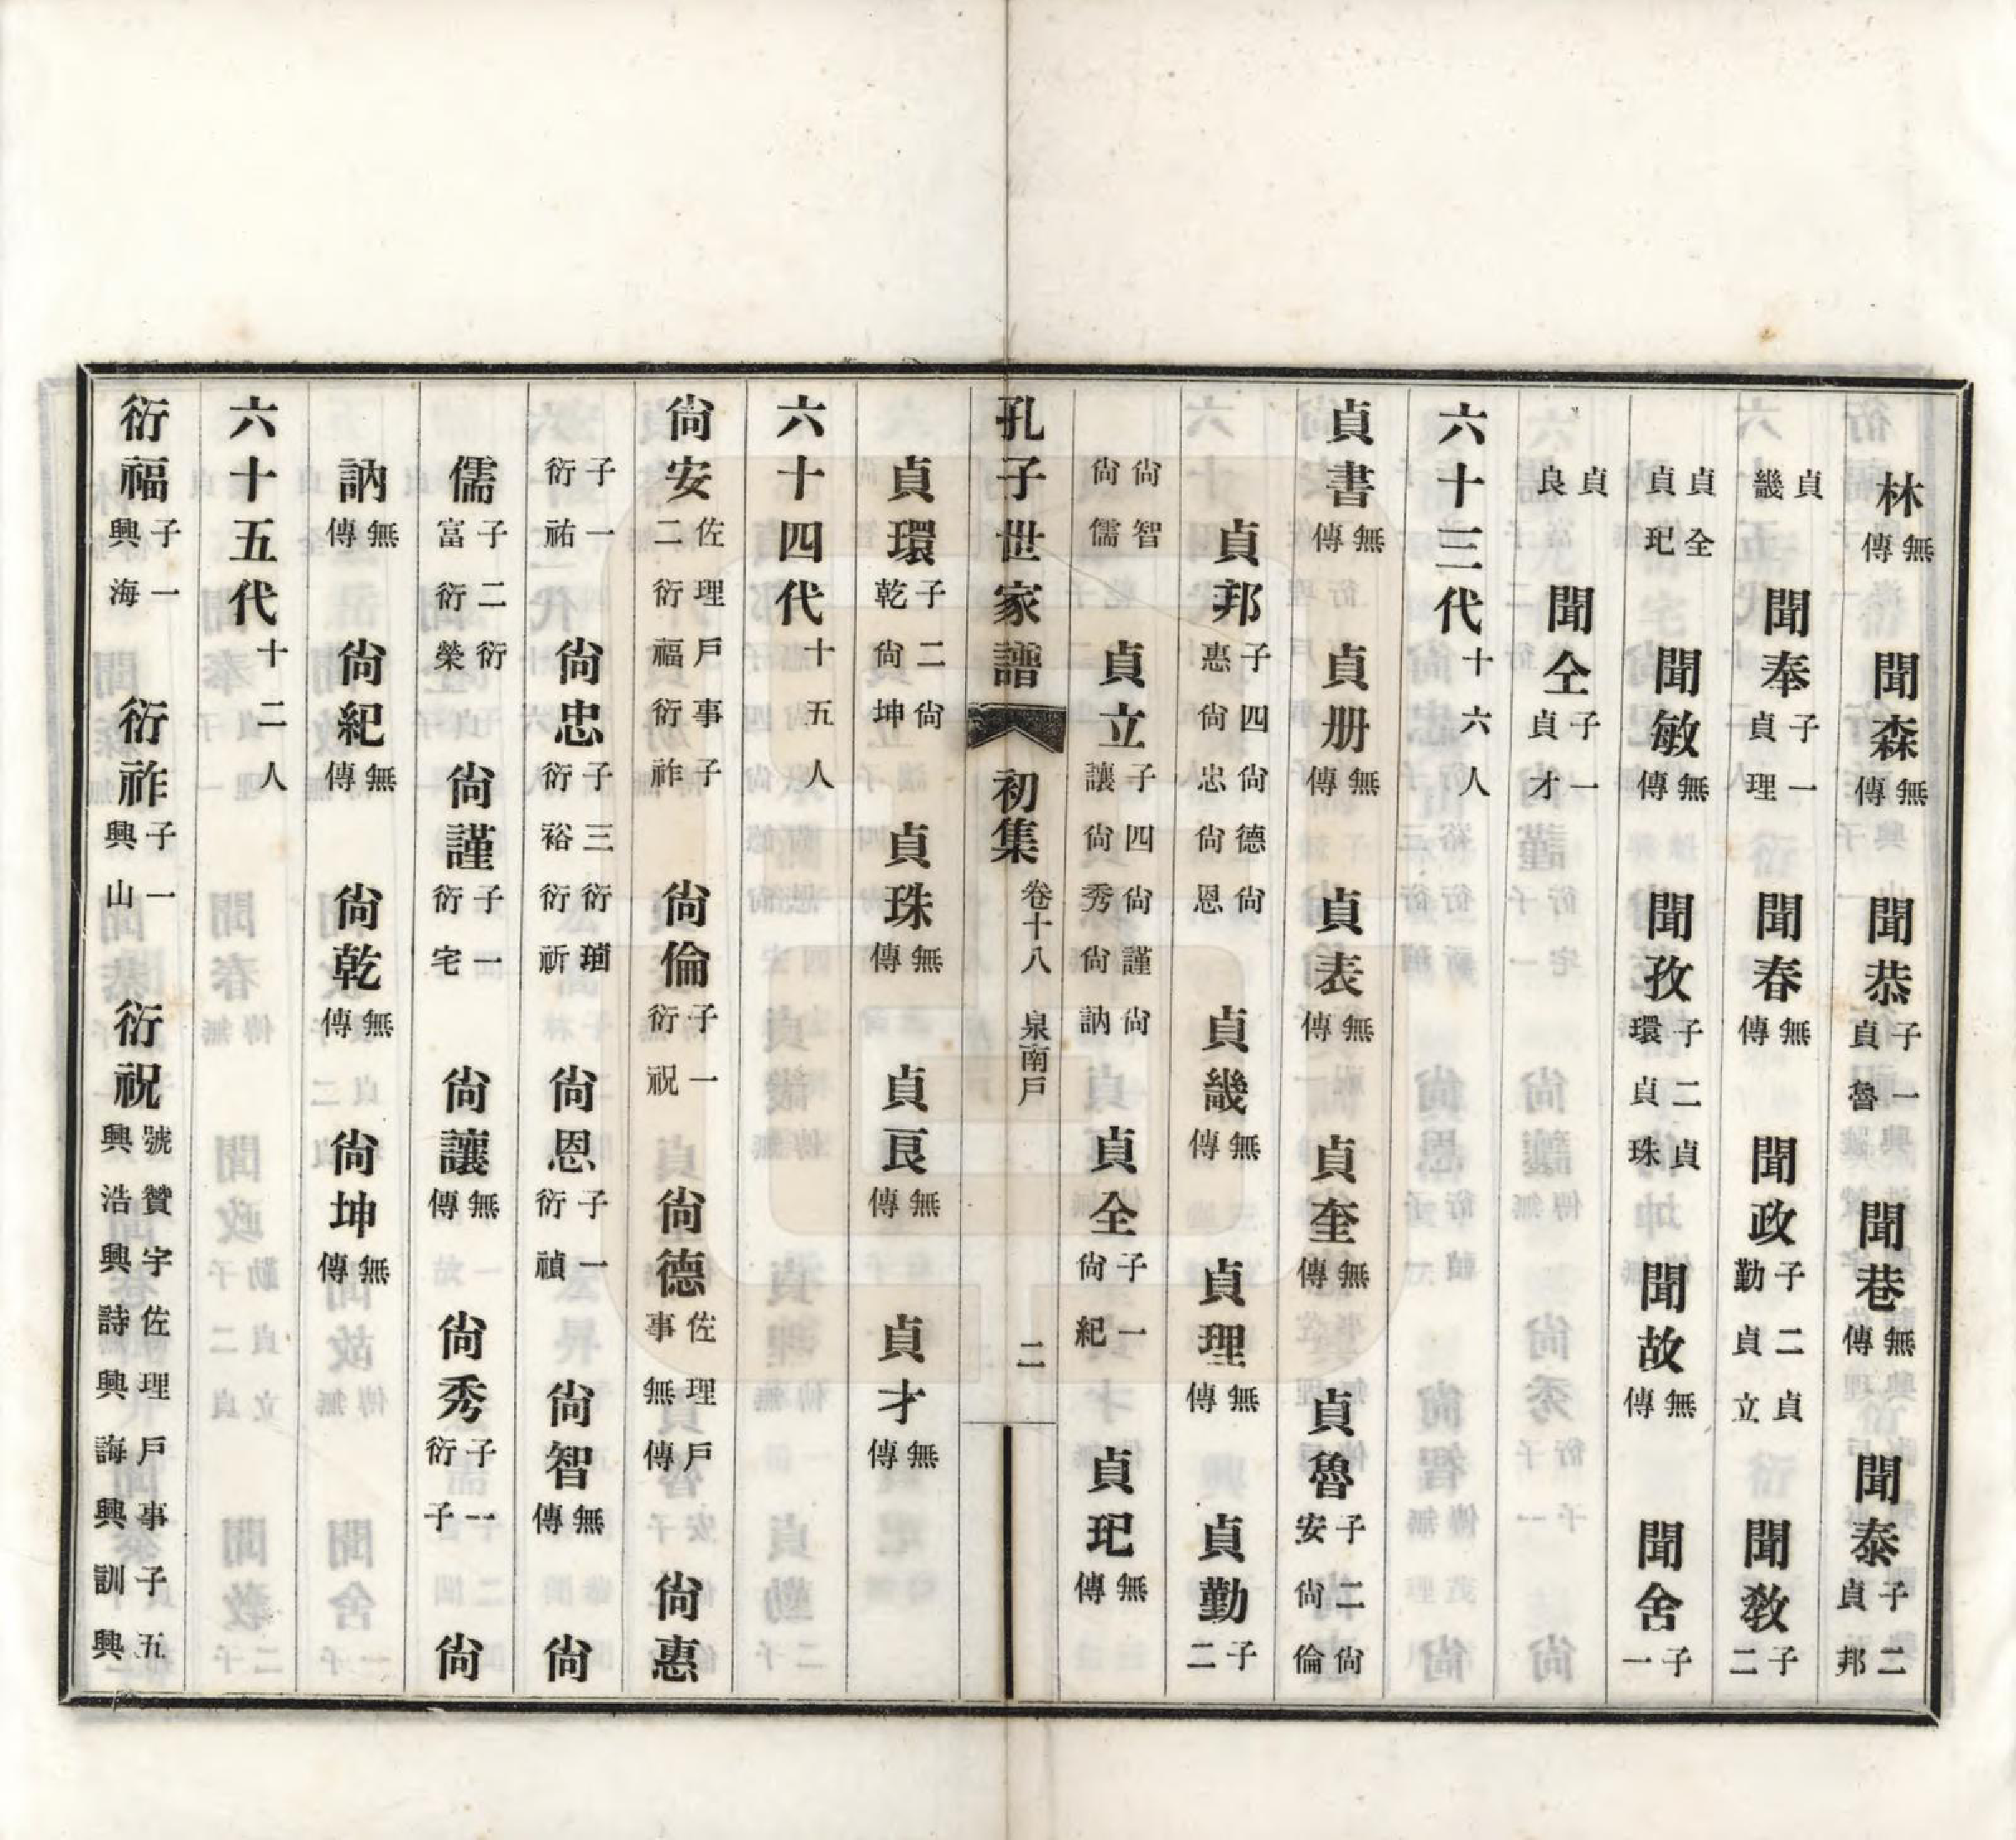 林無傳 聞森無傳 聞恭子一貞魯 聞巷無傳 聞泰子二貞邦
貞畿 聞奉子一貞理 聞春無傳 聞政子二貞勤貞立 聞教子二
貞全貞玘 聞敏無傳 聞孜子二貞環貞珠 聞故無傳 聞舍子一
貞良 聞仝子一貞才
六十三代十六人
貞書無傳 貞册無傳 貞表無傳 貞奎無傳 貞魯子二尙安尙倫
貞邦子四尙德尙惠尙忠尙恩 貞畿無傳 貞理無傳 貞勤子二
尙智尙儒 貞立子四尙謹尙讓尙秀尙訥 貞全子一尙紀 貞玘無傳
孔子世家譜 初集 卷十八 泉南戶 二
貞環子二尙乾尙坤 貞珠無傳 貞良無傳 貞才無傳
六十四代十五人
尙安佐理戶事子二衍福衍祚 尙倫子一衍祝 尙德佐理戶事無傳 尙惠
子一衍祐 尙忠子三衍衍裕衍祈 尙恩子一衍禎 尙智無傳 尙
儒子二衍富衍榮 尙謹子一衍宅 尙讓無傳 尙秀子一衍子 尙
訥無傳 尙紀無傳 尙乾無傳 尙坤無傳
六十五代十二人
衍福子一興海 衍祚子一興山 衍祝號贊宇佐理戶事子五興浩興詩興誨興訓興